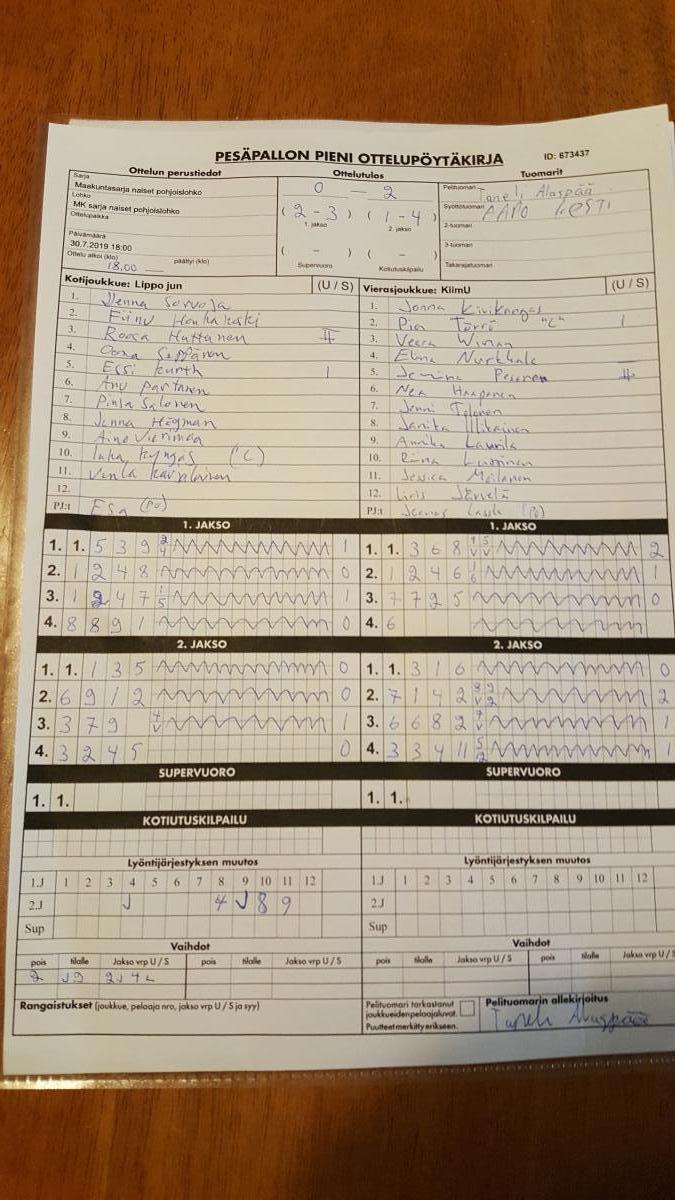 PESÄPALLON PIENI OTTELUPÖYTÄKIRJA
ID: 673437
Ottelun perustiedot
Sarja
Maakuntasarja naiset pohjoislohko
Lohko
MK sarja naiset pohjoislohko
Ottelupaikka
Päivämäärä
30.7.2019 18:00
Ottelu alkoi (klo) päättyi (klo)
18.00
Ottelutulos
0 — 2
(2 - 3) (1 - 4)
1. jakso 2. jakso
( - ) ( - )
Supervuoro Kotiutuskilpailu
Tuomarit
Pelituomari Taneli Alaspää
Syöttötuomari AAPO KESTI
2-tuomari
3-tuomari
Takarajatuomari
Kotijoukkue: Lippo jun (U / S)
1. Jenna Sorvoja
2. Eiinu Honkakoski
3. Roosa Huttunen
4. Oona Seppänen
5. Essi Kurth I
6. Anu Partanen
7. Pinja Salonen
8. Jenna Högman
9. Aino Vierimaa
10. Kyngäs (C)
11. Venla
12.
PJ:t Esa (PJ)
Vierasjoukkue: KiimU (U / S)
1. Jonna Kivikangas
2. Pia Törrö "C" I
3. Veera
4. Elina
5. Pesonen
6. Nea Haapanen
7. Jenni
8. Janika Ullikainen
9. Annika Laurila
10. Luttinen
11. Jessica Moilanen
12. Iiris Järvelä
PJ:t (PJ)
1. JAKSO
1. 1. 5 3 9 2/4 1
2. 1 2 4 8 0
3. 1 2 4 7 1/5 1
4. 8 8 9 1 0
1. JAKSO
1. 1. 3 6 8 2
2. 1 2 4 6 1/6 1
3. 7 7 2 5 0
4. 6
2. JAKSO
1. 1. 1 3 5 0
2. 6 9 1 2 0
3. 3 7 9 4/V 1
4. 3 2 4 5 0
2. JAKSO
1. 1. 3 1 6 0
2. 7 1 4 2 2
3. 6 6 8 2 1
4. 3 3 4 11 5/2 1
SUPERVUORO
1. 1.
SUPERVUORO
1. 1.
KOTIUTUSKILPAILU
KOTIUTUSKILPAILU
Lyöntijärjestyksen muutos
1.J 1 2 3 4 5 6 7 8 9 10 11 12
2.J J 4 J 8 9
Sup
Lyöntijärjestyksen muutos
1.J 1 2 3 4 5 6 7 8 9 10 11 12
2.J
Sup
Vaihdot
pois tilalle Jakso vrp U / S pois tilalle Jakso vrp U / S
Vaihdot
pois tilalle Jakso vrp U / S pois tilalle Jakso vrp U / S
Rangaistukset (joukkue, pelaaja nro, jakso vrp U / S ja syy)
Pelituomari tarkastanut
joukkueiden peloajaluvat.
Puutteet merkitty erikseen.
Pelituomarin allekirjoitus
Taneli Alaspää